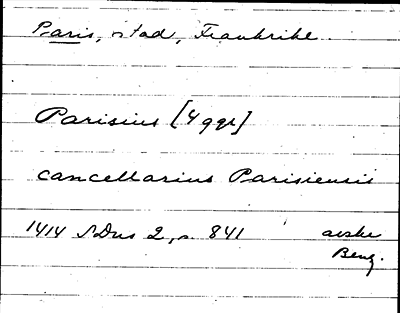 Paris, stad, Frankrike.
Parisius [4 ggr]
cancellarius Parisiensis
1414 SDns 2, s. 841 avskr
Beng.